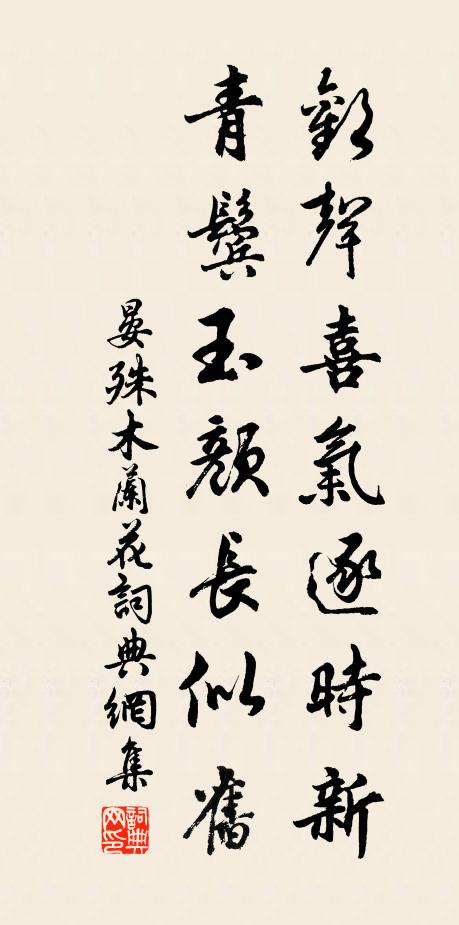 歡聲喜氣逐時新
青鬢玉顏長似舊
晏殊木蘭花詞典網集
詞典網印